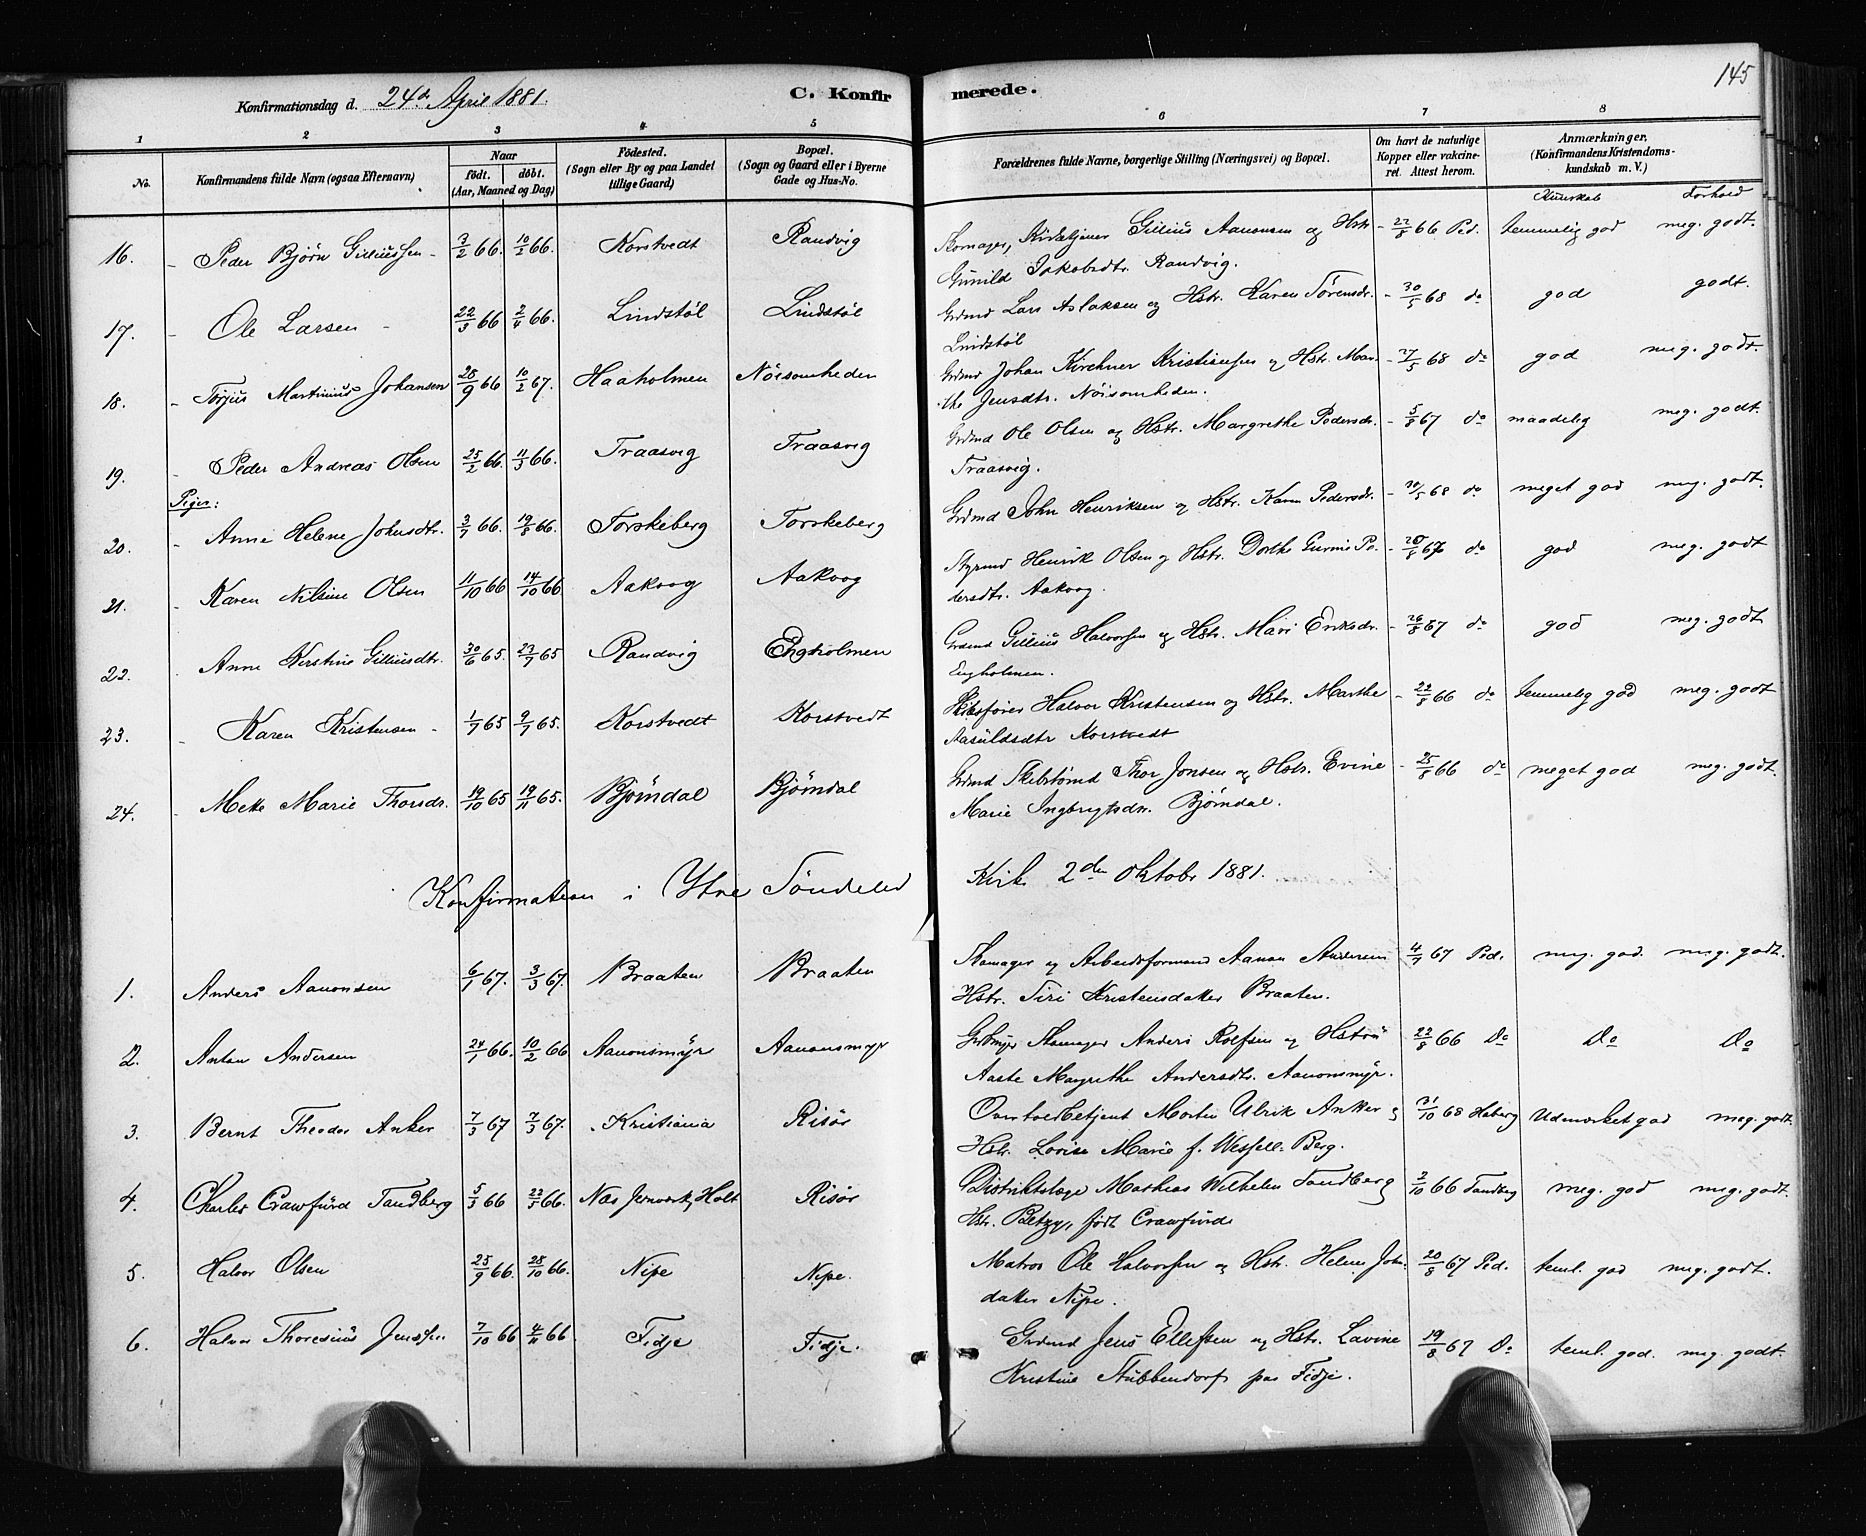 Konfirmationsdag d. 24de April 1881. C. Konfirmerede. 145
1 2 3 4 5 6 7 8
No. Konfirmandens fulde Navn (ogsaa Efternavn) Naar født. døbt. (Aar, Maaned og Dag) Fødested. (Sogn eller By og paa Landet tillige Gaard) Bopæl. (Sogn og Gaard eller i Byerne Gade og Hus-No. Forældrenes fulde Navne, borgerlige Stilling (Næringsvei) og Bopæl. Om havt de naturlige Kopper eller vakcineret. Attest herom. Anmærkninger, (Konfirmandens Kristendomskundskab m. V.)
Kundskab Forhold
16. - Peder Bjørn Gilliussen - 3/2 66. 10/2 66. Korstvedt Randvig Skomager, Kirketjener Gillius Aanonsen og Hstr - 22/8 66 Pd. temmelig god meg. godt.
Gunild Jakobsdtr. Randvig.
17. - Ole Larsen - 22/3 66 2/4 66. Lindstøl Lindstøl Grdmd Lars Aslaksen og Hstr. Karen Tørensdr. - 30/5 68 do god godt.
Lindstøl
18. - Torjus Martinius Johansen 28/9 66 10/2 67. Haaholmen Nøisomheden Grdmd Johan Kirchner Kristiansen og Hstr. Mar- - 27/5 68 do god meg. godt.
the Jensdtr. Nøisomheden.
19. - Peder Andreas Olsen 25/2 66. 11/3 66. Traasvig Traasvig Grdmd Ole Olsen og Hstr. Margrethe Pedersdr. - 5/8 67 do maadelig meg. godt.
Traasvig.
Piger:
20. - Anne Helene Johnsdtr. 3/7 66. 19/8 66. Torskeberg Torskeberg Grdmd John Henriksen og Hstr. Karen Pedersdr. - 30/5 68 do meget god meg. godt.
21. - Karen Nilsine Olsen 11/10 66 14/10 66 Aakvog Aakvog Styrmd Henrik Olsen og Hstr. Dorthe Gurine Pe- do god meg. godt
dersdtr. Aakvog.
22. - Anne Kirstine Gilliusdtr. 30/6 65. 23/7 65 Randvig Engholmen Grdmd Gillius Halvorsen og Hstr. Mari Eriksdr. - 26/8 67 do god meg. godt
Engholmen.
23. - Karen Kristensen - 1/7 65 9/7 65. Korstvedt Korstvedt Skibsfører Halvor Kristensen og Hstr. Marthe - 22/8 66 do temmelig god meg. godt
Aasuldsdtr Korstvedt
24. - Meke Marie Thorsdr. 19/10 65 19/11 65. Bjørndal Bjørndal Grdmd Skibstømd Thor Jonsen og Hstr. Evine - 25/8 66 do meget god meg. godt.
Marie Ingbrigtsdr. Bjørndal.
Konfirmation i Ytre Søndeled Kirk 2den Oktobr 1881.
1. Anders Aanonsen 6/1 67. 3/3 67. Braaten Braaten Skomager og Arbeidsformand Aanon Andersen 4/7 67 Pd. meg. god. meg. godt.
Hstr. Siri Kristensdatter Braaten.
2. Anton Andersen 24/1 66. 10/2 66 Aanonsmyr Aanonsmyr Skomager Anders Roefsen og Hstru 22/8 66 Do Do Do
Aaste Margrethe Andersdtr. Aanonsmyr.
3. Bernt Theodor Anker 7/3 67 7/3 67. Kristiania Risør Overtoldbetjent Morten Ulrik Anker og 31/10 68 Hoberg Udmærket god meg. godt.
Hstr. Lovise Marie f. Wessel-Berg.
4. Charles Crawfurd Tandberg 5/3 66 23/5 66. Næs Jernværk, Holt Risør Distriktslæge Mathias Wilhelm Tandberg og 3/10 66 Tandberg meg. god meg. godt.
Hstr. Betzy, født Crawfurd
5. Halvor Olsen 25/9 66. 28/10 66. Nipe Nipe. Matros Ole Halvorsen og Hstr. Helene John- 20/8 67 Pd. teml. god meg. godt.
datter Nipe.
6. Halvor Thoresius Jenssen 7/10 66 4/11 66. Fidje Fidje. Grdmd Jens Ellefsen og Hstr. Lavine 19/8 67 Do teml. god. meg. godt.
Kristine Stubbendorf paa Fidje.